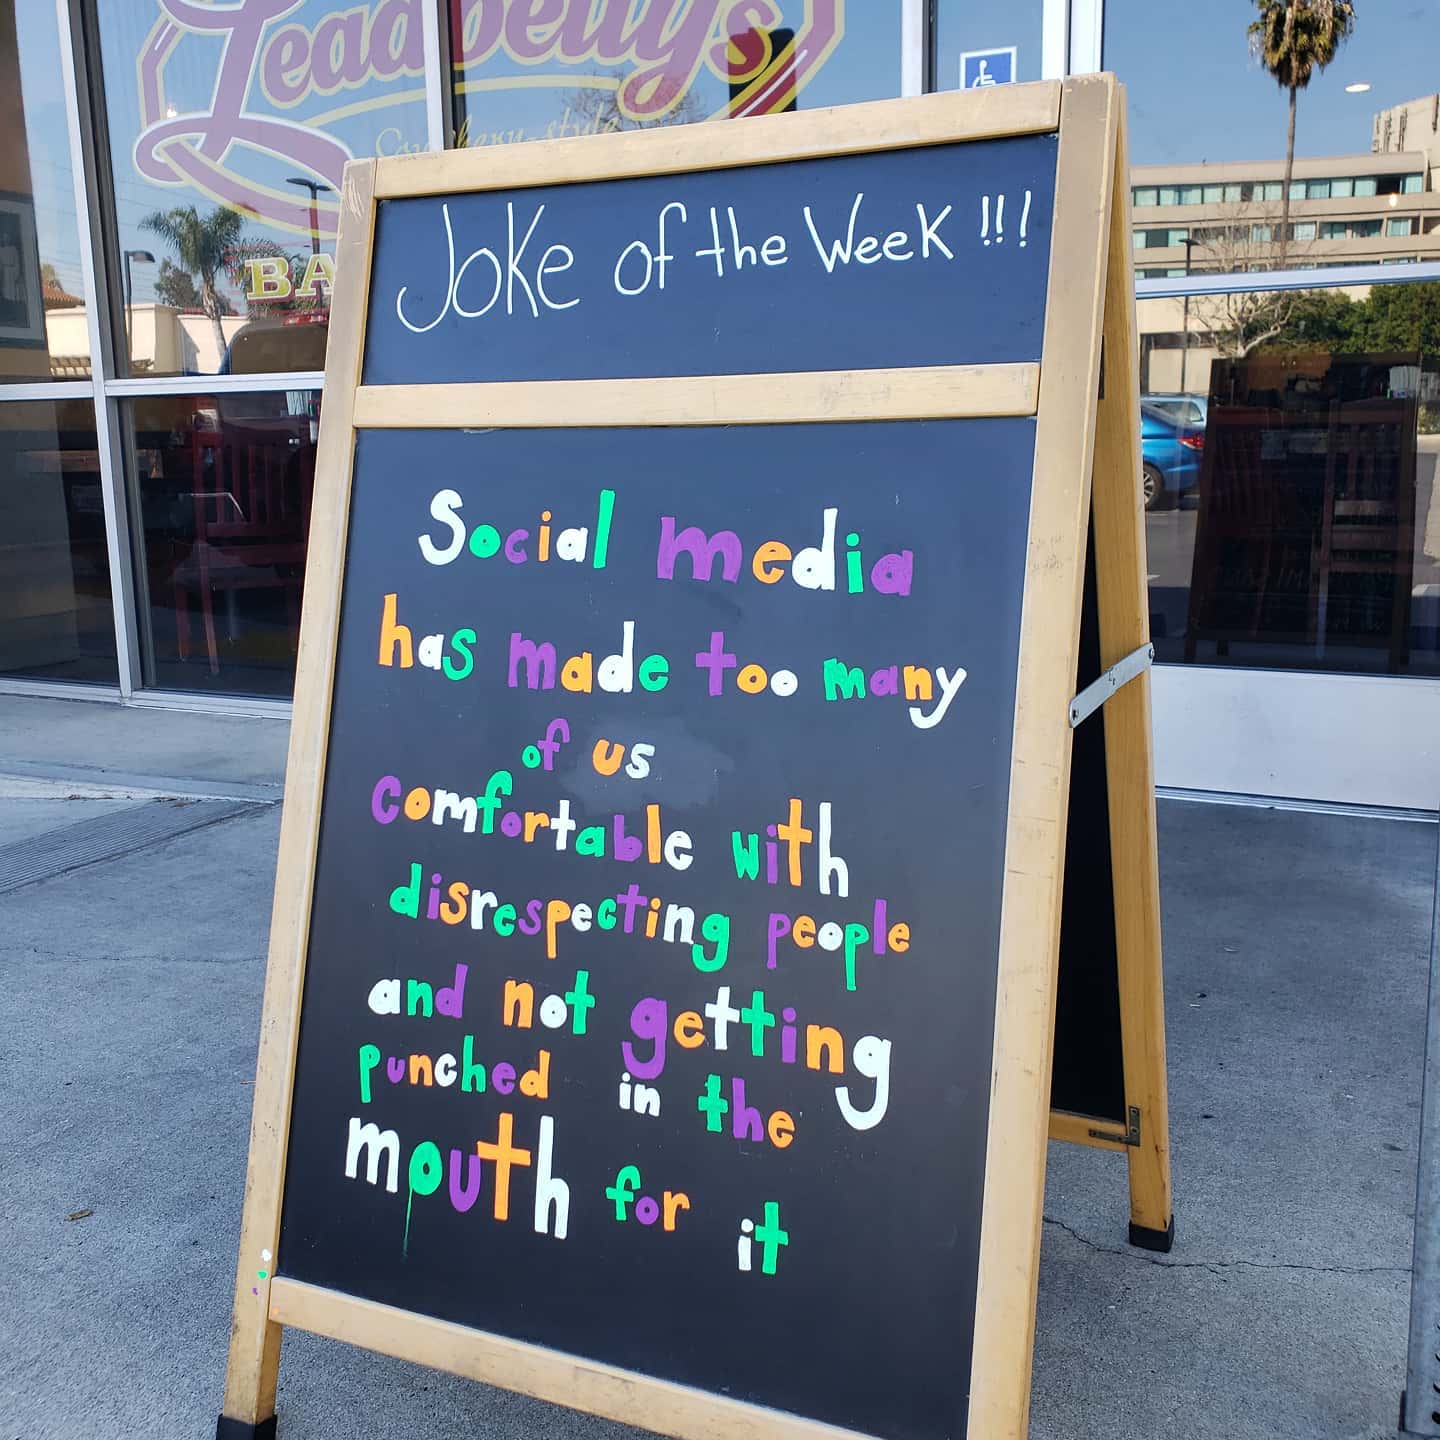 Leadbelly's
Southern-style
BA
Joke of the Week !!!
Social media
has made too many
of us
comfortable with
disrespecting people
and not getting
punched in the
mouth for it